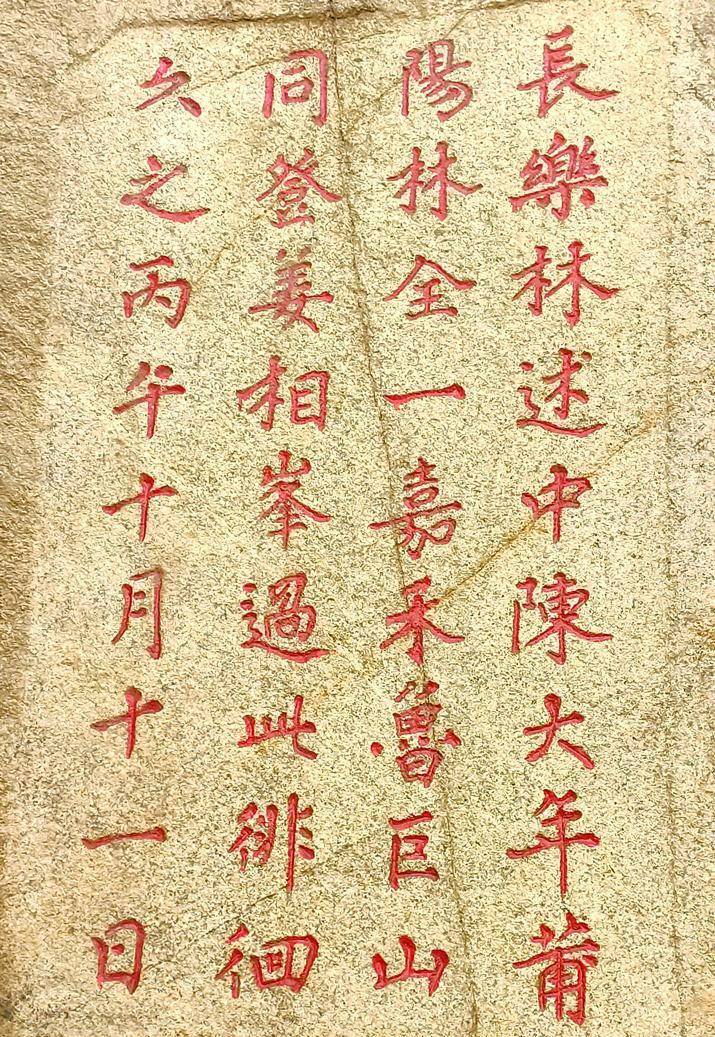 長樂林述中陳大年莆
陽林全一嘉禾魯巨山
同登姜相峯過此徘徊
久之丙午十月十一日